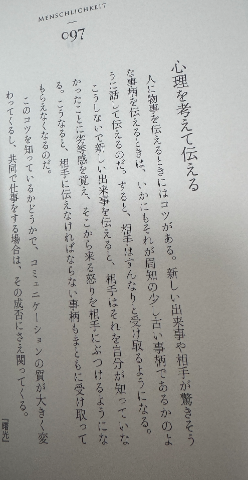 MENSCHLICHKEIT
097
心理を考えて伝える
人に物事を伝えるときにはコツがある。新しい出来事や相手が驚きそう
な事柄を伝えるときは、いかにもそれが周知の少し古い事柄であるかのよ
うに話して伝えるのだ。すると、相手はすんなりと受け取るようになる。
こうしないで新しい出来事を伝えると、相手はそれを自分が知っていな
かったことに劣等感を覚え、そこから来る怒りを相手にぶつけるようにな
る。こうなると、相手に伝えなければならない事柄もまともに受け取って
もらえなくなるのだ。
このコツを知っているかどうかで、コミュニケーションの質が大きく変
わってくるし、共同で仕事をする場合は、その成否にさえ関ってくる。
『曙光』